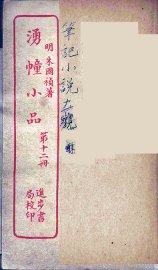 明朱國禎著
湧幢小品
第十二冊
進步書
局校印
筆記小說